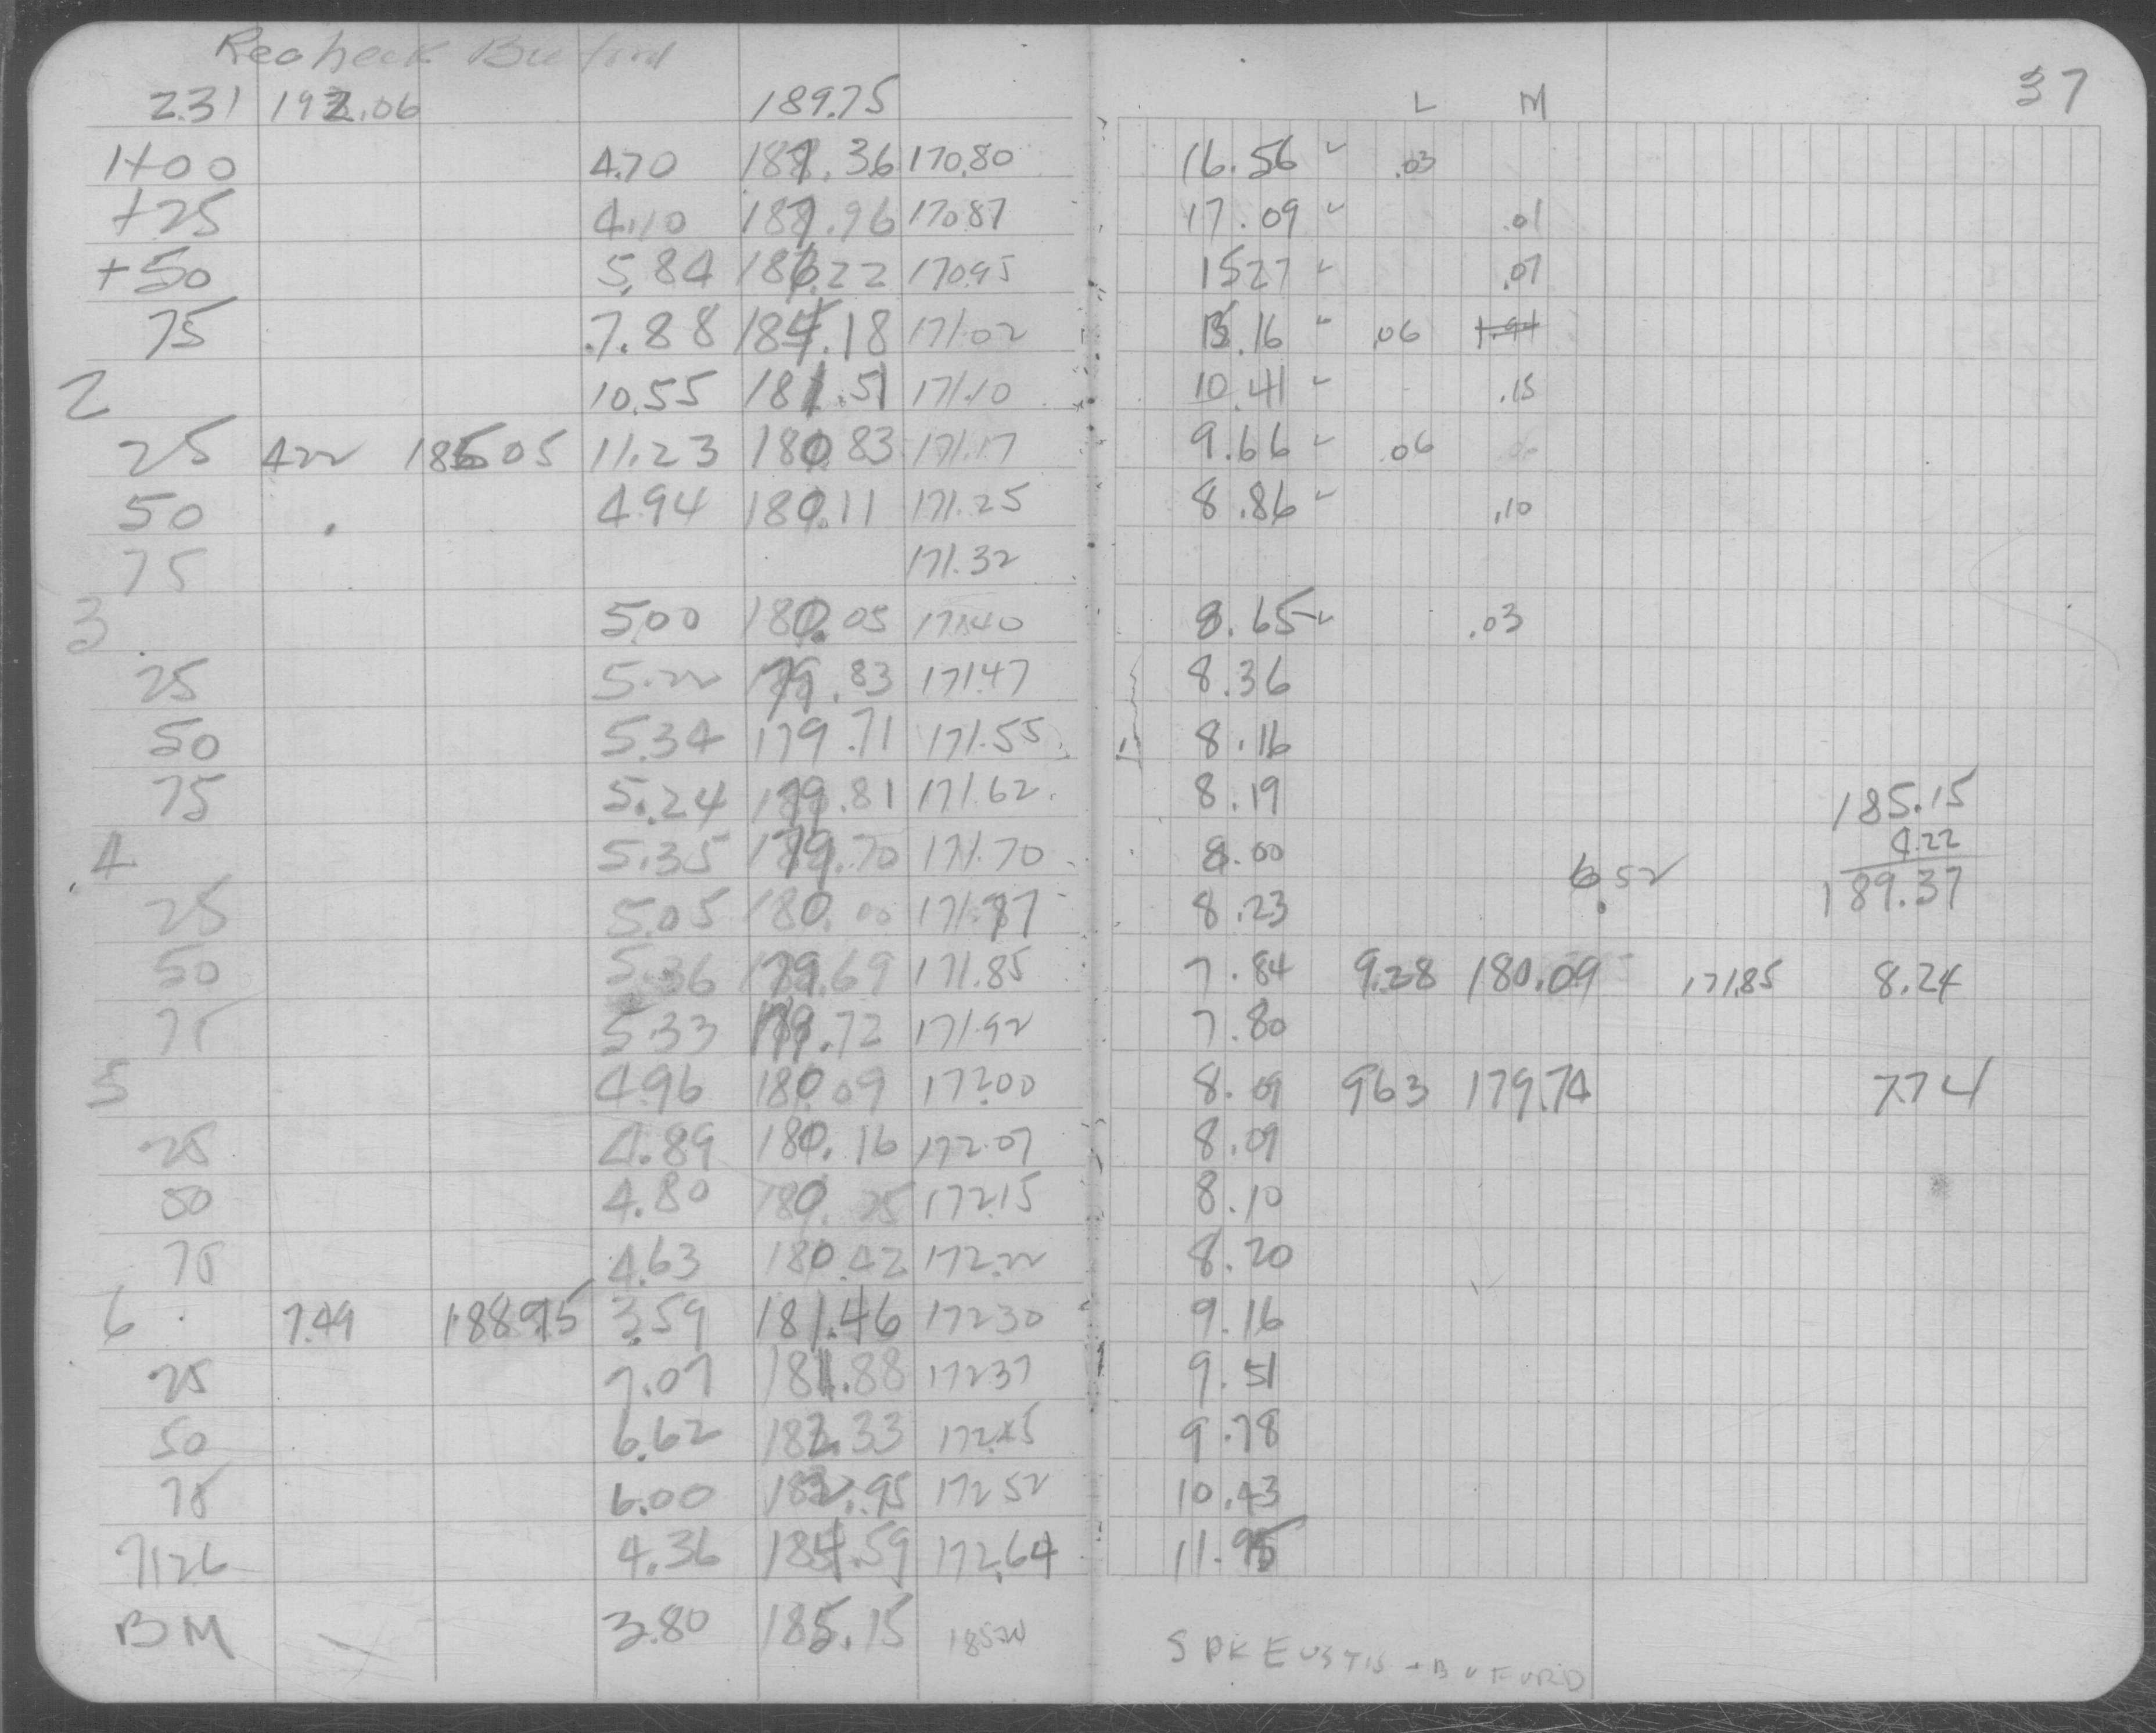 Recheck Buford
37
2.31 192.06 189.75 L M
1+00 4.70 187.36 170.80 16.56 ✓ .03
+25 4.10 187.96 170.87 17.09 ✓ .01
+50 5.84 186.22 170.95 15.27 ✓ .07
75 7.88 184.18 171.02 13.16 ✓ .06
2 10.55 181.51 171.10 10.41 ✓ .15
25 4.22 185.05 11.23 180.83 171.17 9.66 ✓ .06
50 4.94 180.11 171.25 8.86 ✓ .10
75 171.32
3 5.00 180.05 171.40 8.65 ✓ .03
25 5.22 179.83 171.47 8.36
50 5.34 179.71 171.55 8.16
75 5.24 179.81 171.62 8.19 185.15
4.22
4 5.35 179.70 171.70 8.00 6.52 189.37
25 5.05 180.00 171.77 8.23
50 5.36 179.69 171.85 7.84 9.28 180.09 171.85 8.24
75 5.33 179.72 171.92 7.80
5 4.96 180.09 172.00 8.09 9.63 179.74 7.74
25 4.89 180.16 172.07 8.09
50 4.80 180.25 172.15 8.10
75 4.63 180.42 172.22 8.20
6 7.49 188.95 3.59 181.46 172.30 9.16
25 7.07 181.88 172.37 9.51
50 6.62 182.33 172.45 9.78
75 6.00 182.95 172.52 10.43
7+26 4.36 184.59 172.64 11.95
BM 3.80 185.15 185.20 SPK EUSTIS + BUFURD